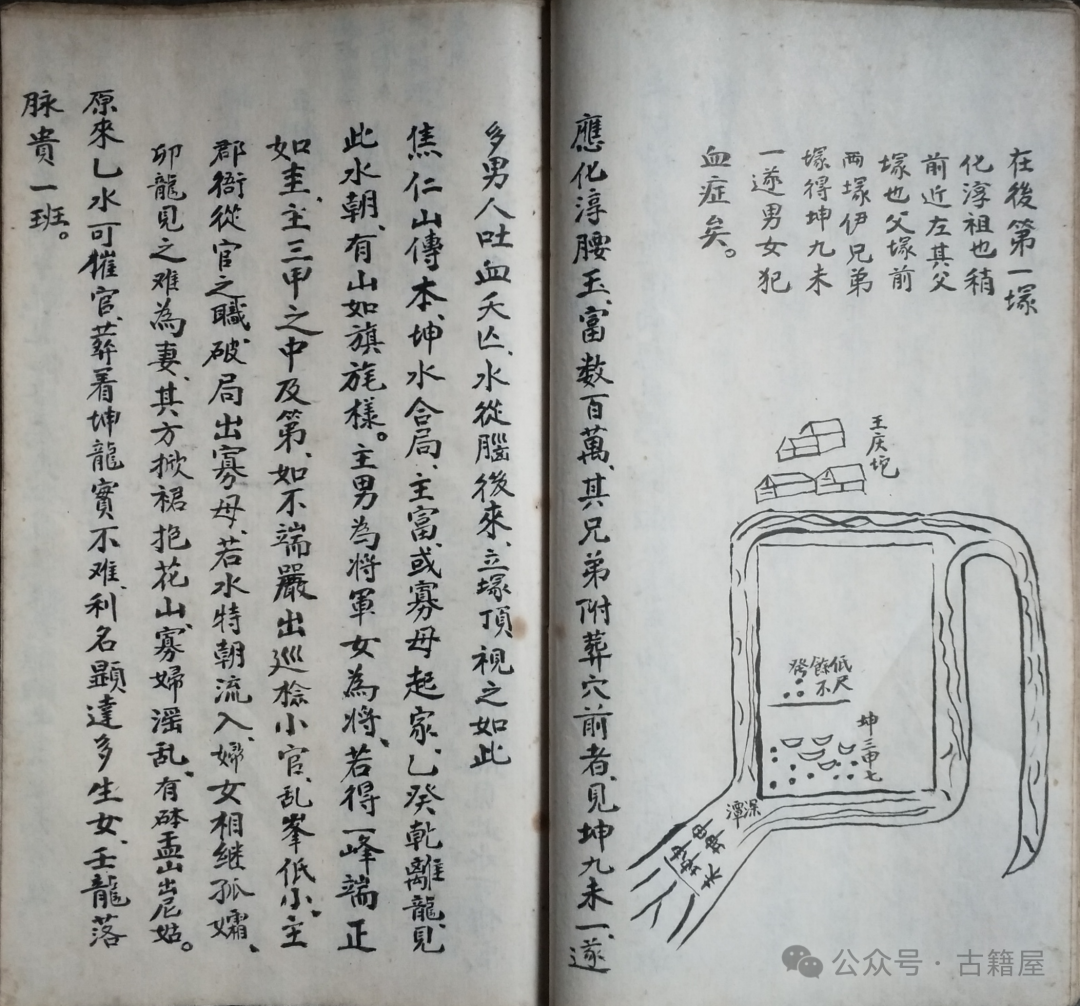 在後第一塚
化淳祖也稍
前近左其父
塚也父塚前
两塚伊兄弟
塚得坤九未
一遂男女犯
血症矣。
王庆圯
發餘低
不尺
坤三申七
深潭
應化淳腰玉、富数百萬、其兄弟附葬穴前者、見坤九未一、遂
多男人吐血夭亡、水從腦後來、立塚頂視之如此
焦仁山傳本、坤水合局、主富、或寡母起家、乙癸乾離龍、見
此水朝、有山如旗旄樣。主男為將軍女為将、若得一峰端正
如圭、主三甲之中及第、如不端嚴出巡檢小官、乱峯低小、主
郡衙從官之職、破局出寡母、若水特朝流入、婦女相継孤孀、
卯龍見之难為妻、其方掀裙抱花山、寡婦滛乱、有砵盂山出尼姑。
原來乙水可催官、葬着坤龍實不难、利名顯達多生女、壬龍落
脉貴一班。
公众号·古籍屋